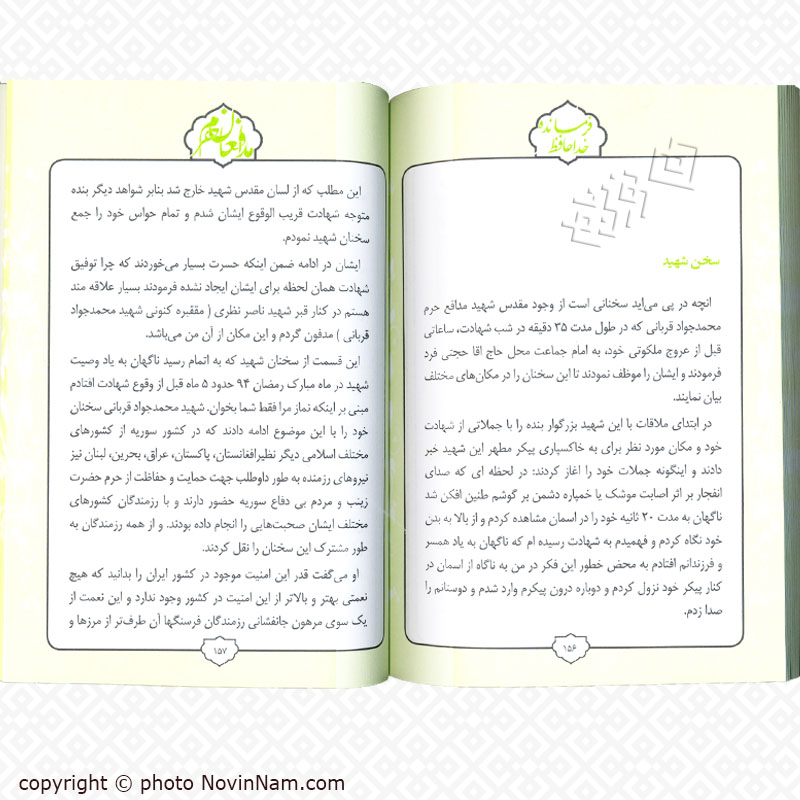 فرمانده
خداحافظ
سخن شهید
انچه در پی می‌اید سخنانی است از وجود مقدس شهید مدافع حرم
محمدجواد قربانی که در طول مدت ۳۵ دقیقه در شب شهادت، ساعاتی
قبل از عروج ملکوتی خود، به امام جماعت محل حاج اقا حجتی فرد
فرمودند و ایشان را موظف نمودند تا این سخنان را در مکان‌های مختلف
بیان نمایند.
در ابتدای ملاقات با این شهید بزرگوار بنده را با جملاتی از شهادت
خود و مکان مورد نظر برای به خاکسپاری پیکر مطهر این شهید خبر
دادند و اینگونه جملات خود را اغاز کردند: در لحظه ای که صدای
انفجار بر اثر اصابت موشک یا خمپاره دشمن بر گوشم طنین افکن شد
ناگهان به مدت ۲۰ ثانیه خود را در اسمان مشاهده کردم و از بالا به بدن
خود نگاه کردم و فهمیدم به شهادت رسیده ام که ناگهان به یاد همسر
و فرزندانم افتادم به محض خطور این فکر در من به ناگاه از اسمان در
کنار پیکر خود نزول کردم و دوباره درون پیکرم وارد شدم و دوستانم را
صدا زدم.
۱۵۶
مدافعان حرم
این مطلب که از لسان مقدس شهید خارج شد بنابر شواهد دیگر بنده
متوجه شهادت قریب الوقوع ایشان شدم و تمام حواس خود را جمع
سخنان شهید نمودم.
ایشان در ادامه ضمن اینکه حسرت بسیار می‌خوردند که چرا توفیق
شهادت همان لحظه برای ایشان ایجاد نشده فرمودند بسیار علاقه مند
هستم در کنار قبر شهید ناصر نظری ( مققبره کنونی شهید محمدجواد
قربانی ) مدفون گردم و این مکان از آن من می‌باشد.
این قسمت از سخنان شهید که به اتمام رسید ناگهان به یاد وصیت
شهید در ماه مبارک رمضان ۹۴ حدود ۵ ماه قبل از وقوع شهادت افتادم
مبنی بر اینکه نماز مرا فقط شما بخوان. شهید محمدجواد قربانی سخنان
خود را با این موضوع ادامه دادند که در کشور سوریه از کشورهای
مختلف اسلامی دیگر نظیرافغانستان، پاکستان، عراق، بحرین، لبنان نیز
نیروهای رزمنده به طور داوطلب جهت حمایت و حفاظت از حرم حضرت
زینب و مردم بی دفاع سوریه حضور دارند و با رزمندگان کشورهای
مختلف ایشان صحبت‌هایی را انجام داده بودند. و از همه رزمندگان به
طور مشترک این سخنان را نقل کردند.
او می‌گفت قدر این امنیت موجود در کشور ایران را بدانید که هیچ
نعمتی بهتر و بالاتر از این امنیت در کشور وجود ندارد و این نعمت از
یک سوی مرهون جانفشانی رزمندگان فرسنگها آن طرف‌تر از مرزها و
۱۵۷
copyright © photo NovinNam.com